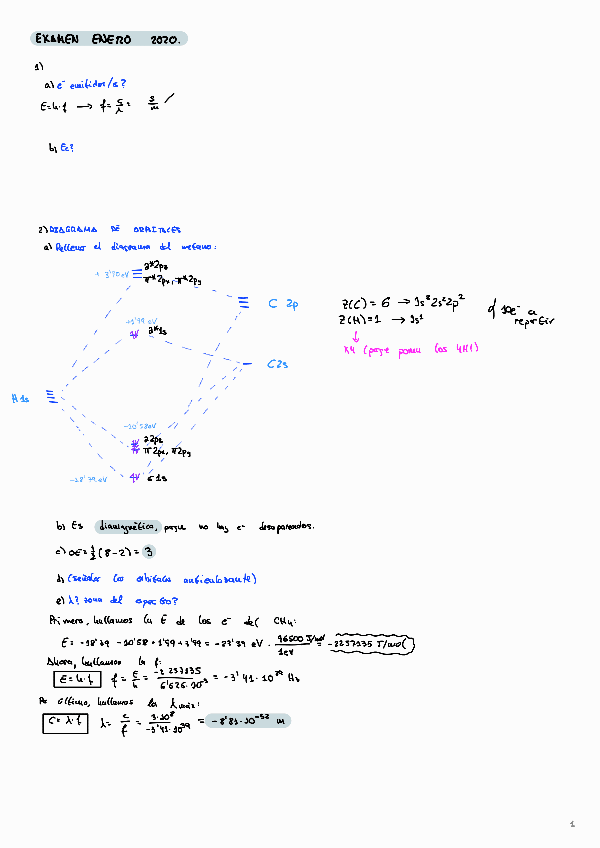 EXAMEN ENERO 2020.
1)
a) e⁻ emitidos/s?
E=h·f → f= c/λ =
b) Ec?
2) DIAGRAMA DE ORBITALES
a) Rellena el diagrama del metano:
+ 3'90 eV
π*2px, π*2py
C 2p
+1'99 eV
C2s
H1s
-10'58eV
π2px, π2py
-18'79 eV
σ1s
Z(C) = 6 → 1s²2s²2p²
Z(H)=1 → 1s¹
10e⁻ a repartir
x4 (porque ponen los 4H!)
b) Es diamagnético, porque no hay e⁻ desapareados.
c) OE=½(8-2)=3
d) (señalar los orbitales antienlazante)
e) λ? zona del espectro?
Primero, hallamos la E de los e⁻ del CH₄:
E= -18'39 -10'58+1'99+3'99 = -23'39 eV · 96500 J/mol / 1eV = -2257135 J/mol
Ahora, hallamos la f:
E=h·f f= E/h = = -3'41·10³⁹ Hz
Por último, hallamos la λmáx:
C=λ·f λ= c/f = 3·10⁸ / -3'41·10³⁹ = -8'81·10⁻³² m
1